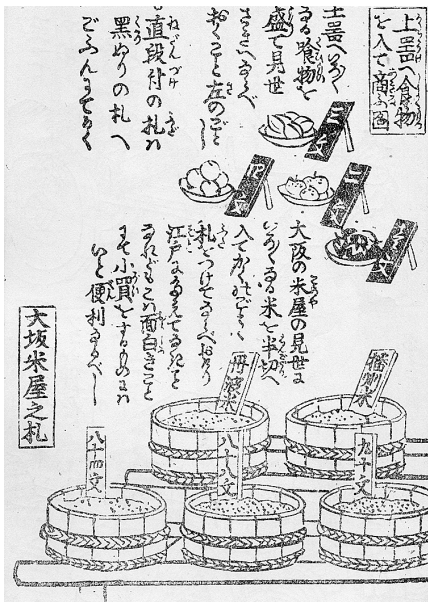 土噐へ食物
を入て商ふ圖
土噐へいろ〳〵
なる喰物を
盛て見世
さきへならべ
おくこと左のごとし
直段付の札ハ
黒ぬりの札へ
ごふんにてかく
大阪の米屋の見世に
いろ〳〵なる米を半切へ
入てかくのごとく
札をつけてならべおけり
江戸にたえてなきこと
なれどもこハ面白きこと
にて小買をするものにハ
いと便利なるべし
大坂米屋之札
播州米
丹波米
九十文
八十八文
八十四文